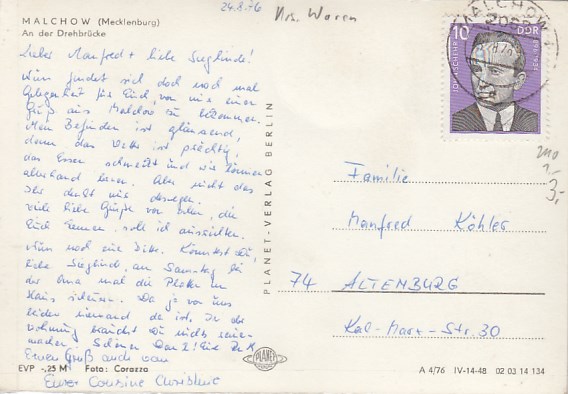 24.8.76
Krs. Waren
MALCHOW (Mecklenburg)
An der Drehbrücke
MALCHOW
10
DDR
JOHN SCHEHR
Liebe Manfred + liebe Sieglinde!
Nun findet sich doch noch mal
Gelegenheit für Euch, von mir einen
Gruß aus Malchow zu bekommen.
Mein Befinden ist glänzend,
denn das Wetter ist prächtig,
das Essen schmeckt und wir können
allerhand lesen. Aber nicht das
Ihr denkt wir
viele liebe Grüße von allen, die
Euch kennen, soll ich ausrichten.
Nun noch eine Bitte. Könntest du,
liebe Sieglinde, am Samstag bei
der Oma mal die
Haus scheuern. Da ja von uns
leider niemand da ist. In der
Wohnung brauchst Du nichts
machen. Schönen Dank!
Einen Gruß auch von
Eurer Cousine Christine
PLANET-VERLAG BERLIN
3,-
Familie
Manfred Köhler
74 ALTENBURG
Karl-Marx-Str. 30
PLANET
EVP -,25 M Foto: Corazza
A 4/76 IV-14-48 02 03 14 134